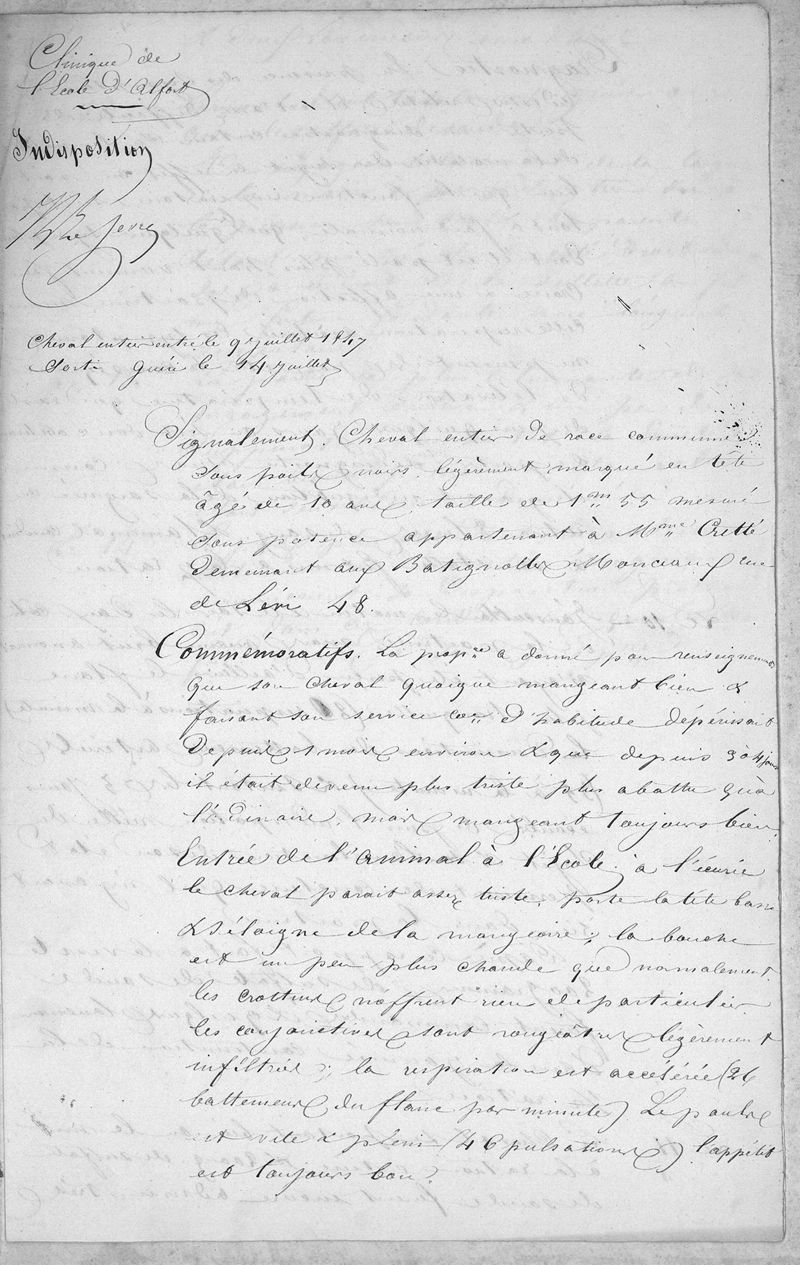 Clinique de
l'Ecole d'Alfort
Indisposition
Cheval entier entré le 9 juillet 1847
Sorti guéri le 14 juillet
Signalement. Cheval entier de race commune
sous poils noirs légèrement marqué en tête
âgé de 10 ans taille de 1m 55 mesuré
sous potence appartenant à Mme Cretté
demeurant aux Batignolles Monceaux rue
de Lévi 48.
Commémoratifs. La propre a donné pour renseignements
que son cheval quoique mangeant bien &
faisant son service d'habitude dépérissait
depuis 1 mois environ & que depuis 3 à 4 jours
il était devenu plus triste plus abattu qu'à
l'ordinaire, mais mangeant toujours bien.
Entrée de l'animal à l'Ecole. à l'écurie
le cheval parait assez triste, porte la tête basse
& s'éloigne de la mangeoire ; la bouche
est un peu plus chaude que normalement.
les crottins n'offrent rien de particulier
les conjonctives sont rougeâtres légèrement
infiltrées ; la respiration est accélérée (26
battements du flanc par minute) Le pouls
est vite & plein (46 pulsations) l'appétit
est toujours bon.